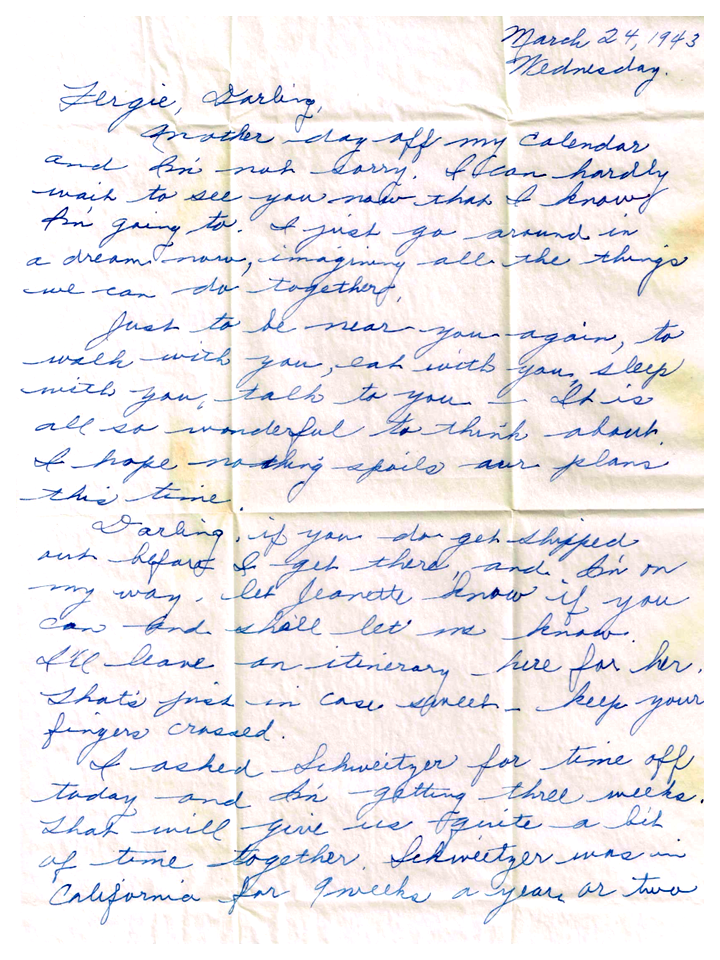 March 24, 1943
Wednesday.
Fergie, Darling,
Another day off my calendar
and I'm not sorry. I can hardly
wait to see you now that I know
I'm going to. I just go around in
a dream now, imagining all the things
we can do together.
Just to be near you again, to
walk with you, eat with you, sleep
with you, talk to you - It is
all so wonderful to think about.
I hope nothing spoils our plans
this time.
Darling, if you do get shipped
out before I get there, and I'm on
my way, let Jeanette know if you
can and she'll let me know.
I'll leave an itinerary here for her.
That's just in case sweet - keep your
fingers crossed.
I asked Schweitzer for time off
today and I'm getting three weeks.
That will give us quite a bit
of time together. Schweitzer was in
California for 9 weeks a year or two